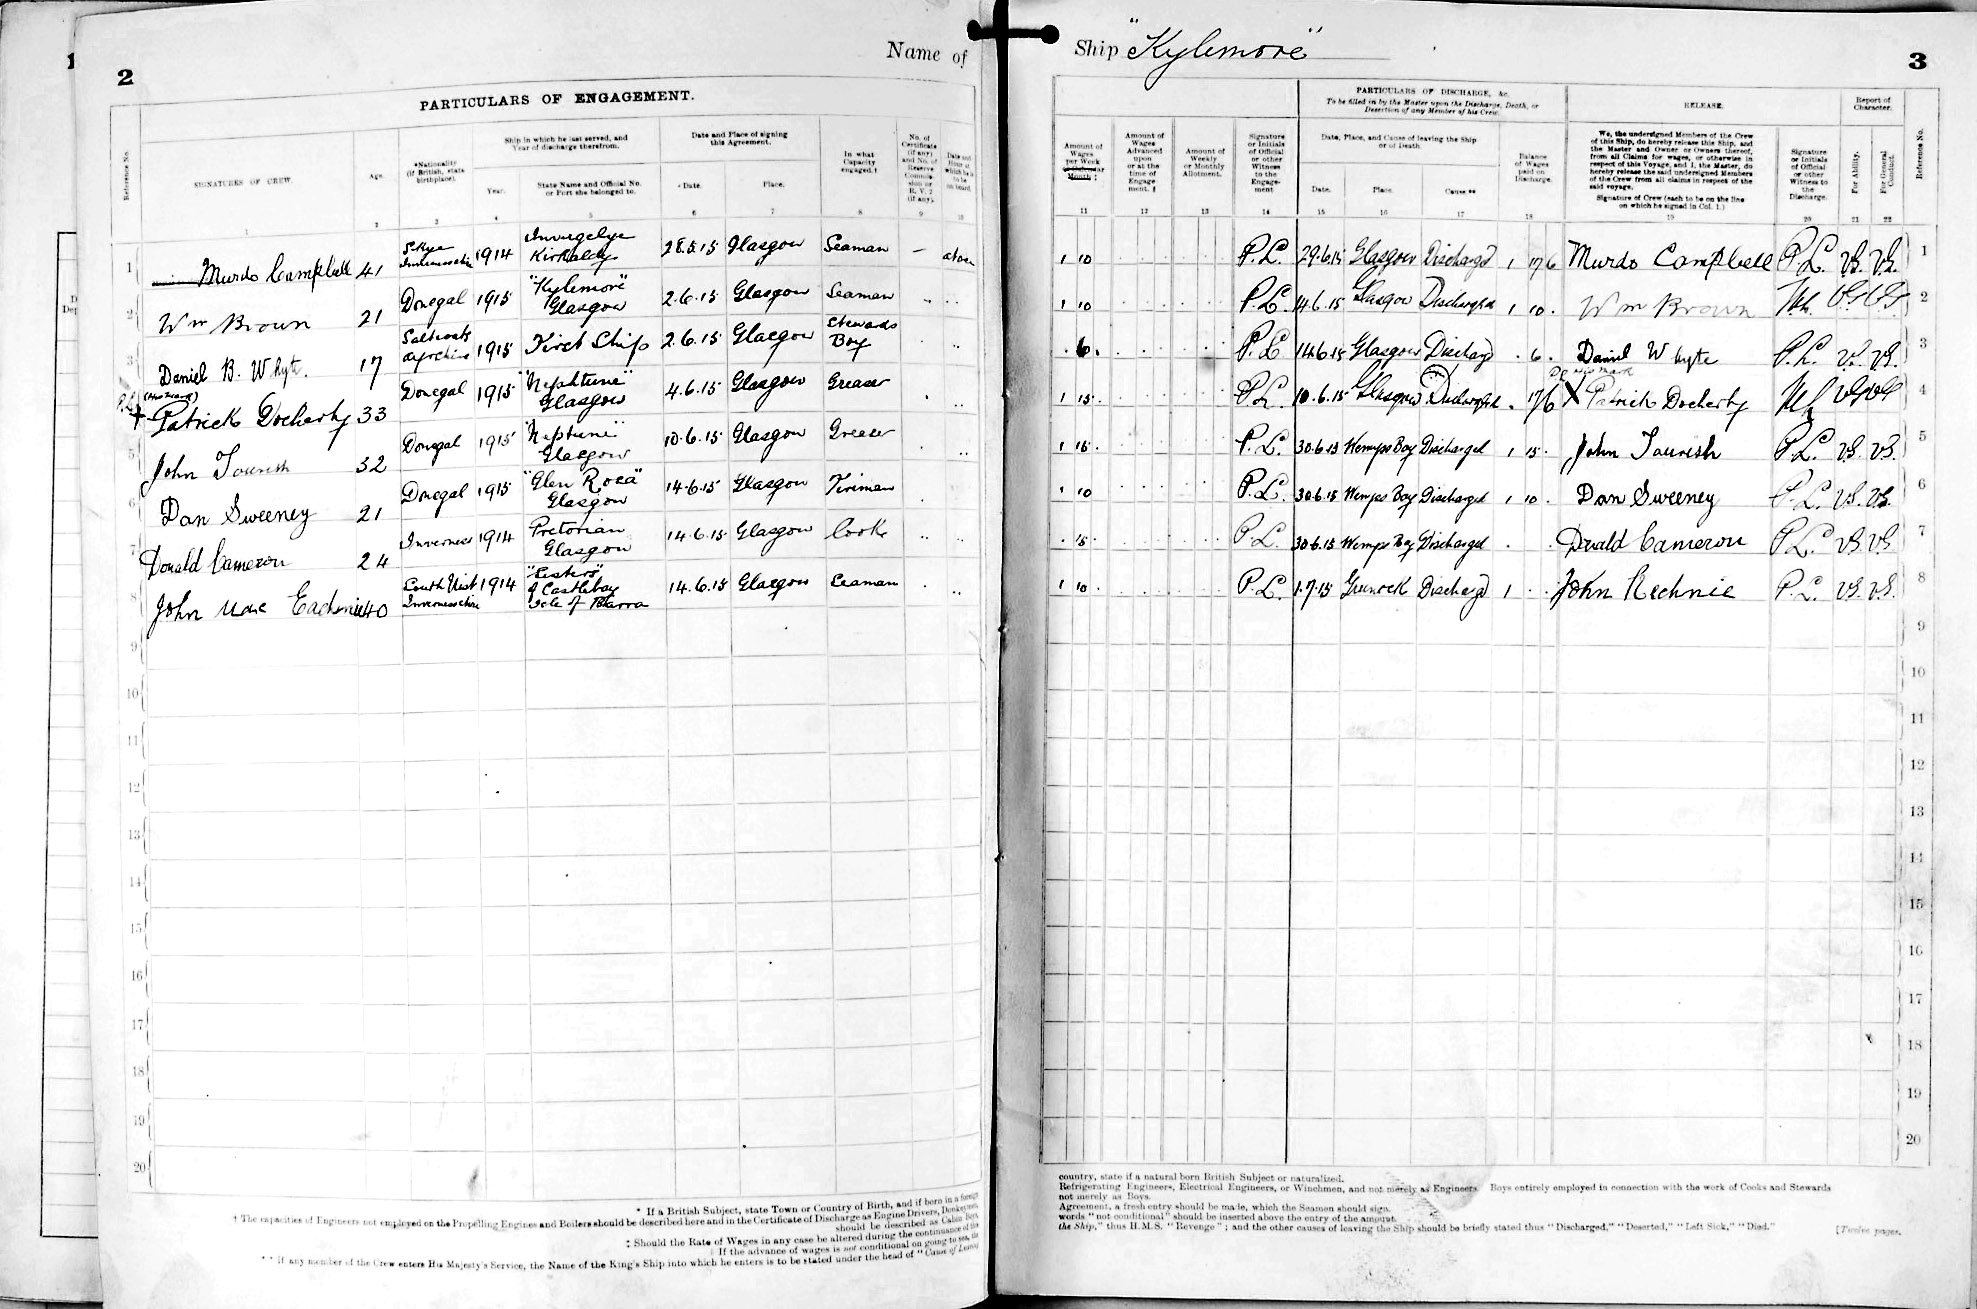 1
2
Name of
PARTICULARS OF ENGAGEMENT.
Reference No.
SIGNATURES OF CREW.
Age.
*Nationality
(If British, state
birthplace).
Ship in which he last served, and
Year of discharge therefrom.
Year.
State Name and Official No.
or Port she belonged to.
Date and Place of signing
this Agreement.
Date.
Place.
In what
Capacity
engaged.†
No. of
Certificate
(if any)
and No. of
Reserve
Commis-
sion or
R. V. 2
(if any).
Date and
Hour at
which he is
to be
on board.
1 2 3 4 5 6 7 8 9 10
1 Murdo Campbell 41 Skye Invernesshire 1914 Invergelye Kirkaldy 28.5.15 Glasgow Seaman — above
2 Wm Brown 21 Donegal 1915 "Kylemore" Glasgow 2.6.15 Glasgow Seaman
3 Daniel B. Whyte. 17 Saltcoats Ayrshire 1915 First Ship 2.6.15 Glasgow Stewards Boy
P.L. (his mark)
4 + Patrick Docherty 33 Donegal 1915 "Nephtune" Glasgow 4.6.15 Glasgow Greaser
5 John Tourish 32 Donegal 1915 "Neptune" Glasgow 10.6.15 Glasgow Greaser
6 Dan Sweeney 21 Donegal 1915 "Glen Rosa" Glasgow 14.6.15 Glasgow Fireman
7 Donald Cameron 24 Inverness 1914 Pretorian Glasgow 14.6.15 Glasgow Cook
8 John Mac Eachnie 40 South Uist Invernesshire 1914 of Castlebay Isle of Barra 14.6.15 Glasgow Seaman
9
10
11
12
13
14
15
16
17
18
19
20
* If a British Subject, state Town or Country of Birth, and if born in a foreign
† The capacities of Engineers not employed on the Propelling Engines and Boilers should be described here and in the Certificate of Discharge as Engine Drivers, Donkeymen,
should be described as Cabin Boys
‡ Should the Rate of Wages in any case be altered during the continuance of the
If the advance of wages is not conditional on going to sea, the
** If any member of the Crew enters His Majesty's Service, the Name of the King's Ship into which he enters is to be stated under the head of "Cause of Leaving
Ship "Kylemore"
3
Amount of
Wages
per Week
or Calendar
Month ‡
Amount of
Wages
Advanced
upon
or at the
time of
Engage
ment. ‡
Amount of
Weekly
or Monthly
Allotment.
Signature
or Initials
of Official
or other
Witness
to the
Engage-
ment
PARTICULARS OF DISCHARGE, &c.
To be filled in by the Master upon the Discharge, Death, or
Desertion of any Member of his Crew.
Date, Place, and Cause of leaving the Ship
or of Death.
Date.
Place.
Cause**
Balance
of Wages
paid on
Discharge.
RELEASE.
We, the undersigned Members of the Crew
of this Ship, do hereby release this Ship, and
the Master and Owner or Owners thereof,
from all Claims for wages, or otherwise in
respect of this Voyage, and I, the Master, do
hereby release the said undersigned Members
of the Crew from all claims in respect of the
said voyage.
Signature of Crew (each to be on the line
on which he signed in Col. 1.)
Signature
or Initials
of Official
or other
Witness to
the
Discharge.
Report of
Character.
For Ability.
For General
Conduct.
Reference No.
11 12 13 14 15 16 17 18 19 20 21 22
1 10 P.L. 29.6.15 Glasgow Discharged 1 17 6 Murdo Campbell P.L. V.G. V.G. 1
1 10 P.L. 14.6.15 Glasgow Discharged 1 10 Wm Brown V.G. V.G. 2
6 P.L. 14.6.15 Glasgow Discharged 6 Daniel Whyte P.L. V.G. V.G. 3
his mark
1 15 P.L. 10.6.15 Glasgow Discharged 17/6 X Patrick Docherty V.G. V.G. 4
1 15 P.L. 30.6.15 Wemyss Bay Discharged 1 15 John Tourish P.L. V.G. V.G. 5
1 10 P.L. 30.6.15 Wemyss Bay Discharged 1 10 Dan Sweeney P.L. V.G. V.G. 6
15 P.L. 30.6.15 Wemyss Bay Discharged Donald Cameron P.L. V.G. V.G. 7
1 10 P.L. 1.7.15 Greenock Discharged 1 John Kechnie P.L. V.G. V.G. 8
9
10
11
12
13
14
15
16
17
18
19
20
country, state if a natural born British Subject or naturalized.
Refrigerating Engineers, Electrical Engineers, or Winchmen, and not merely as Engineers. Boys entirely employed in connection with the work of Cooks and Stewards
not merely as Boys.
Agreement, a fresh entry should be made, which the Seamen should sign.
words "not conditional" should be inserted above the entry of the amount.
the Ship," thus H.M.S. "Revenge"; and the other causes of leaving the Ship should be briefly stated thus "Discharged," "Deserted," "Left Sick," "Died."
[Twelve pages.